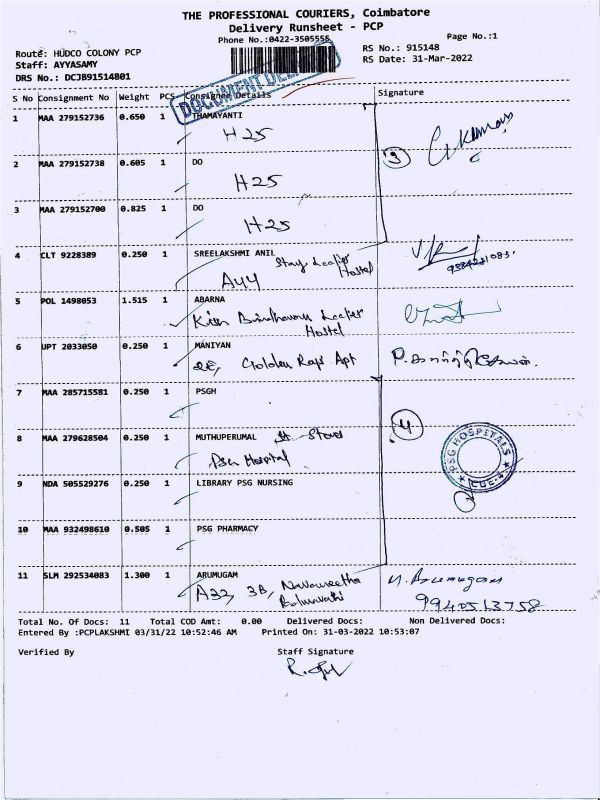 THE PROFESSIONAL COURIERS, Coimbatore
Delivery Runsheet - PCP
Phone No.:0422-3505555
Page No.:1
Route: HUDCO COLONY PCP
RS No.: 915148
Staff: AYYASAMY
RS Date: 31-Mar-2022
DRS No.: DCJB91514801
DOCUMENT
S No Consignment No Weight PCS Consignee Details Signature
1 MAA 279152736 0.650 1 THAMAYANTI
H25
3
2 MAA 279152738 0.605 1 DO
H25
3 MAA 279152700 0.825 1 DO
H25
4 CLT 9228389 0.250 1 SREELAKSHMI ANIL
Hostel
A44
5 POL 1498053 1.515 1 ABARNA
Hostel
6 UPT 2033050 0.250 1 MANIYAN
2E, Golden Rays Apt
7 MAA 285715581 0.250 1 PSGH
4
8 MAA 279628504 0.250 1 MUTHUPERUMAL Stores
PSG Hospital
PSG HOSPITALS
CBE-4
9 NDA 505529276 0.250 1 LIBRARY PSG NURSING
10 MAA 932498610 0.505 1 PSG PHARMACY
11 SLM 292534083 1.300 1 ARUMUGAM
A32, 3B,
N. Arumugam
9940513758
Total No. Of Docs: 11 Total COD Amt: 0.00 Delivered Docs: Non Delivered Docs:
Entered By :PCPLAKSHMI 03/31/22 10:52:46 AM Printed On: 31-03-2022 10:53:07
Verified By Staff Signature